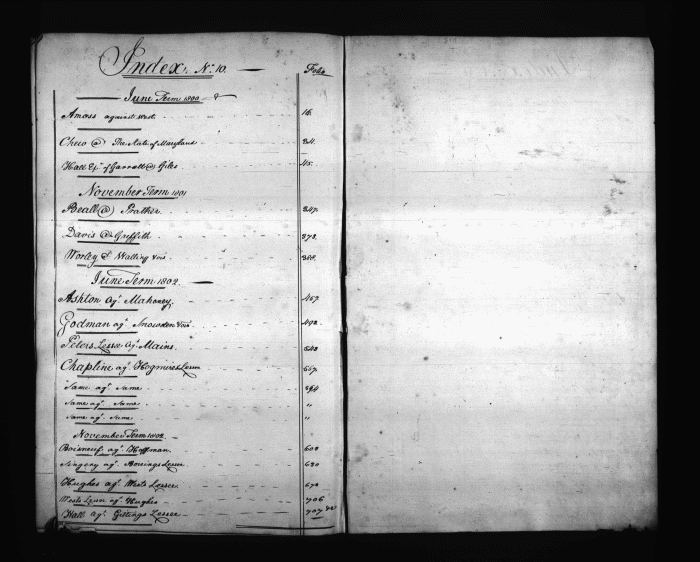 Index. No. 10.
Folio
June Term 1800
Amoss against West 16.
Chew @ The State of Maryland 34.
Hall Exr. of Garrett @ Giles 45.
November Term 1801
Beall @ Prather 347.
Davis @ Griffith 373.
Worley & Walling 388.
June Term 1802
Ashton agt. Mahoney 457.
Godman agt. Snowden 492
Peters Lessee agt. Mains 548
Chapline agt. Hogmires Lessee 567.
Same agt. Same 584
Same agt. Same "
Same agt. Same "
November Term 1802
agt. Hoffman 608
agt. Lessee 630
Hughes agt. Wests Lessee 670
Wests Lessee agt. Hughes 706
Hall agt. Gittings Lessee 707 &c